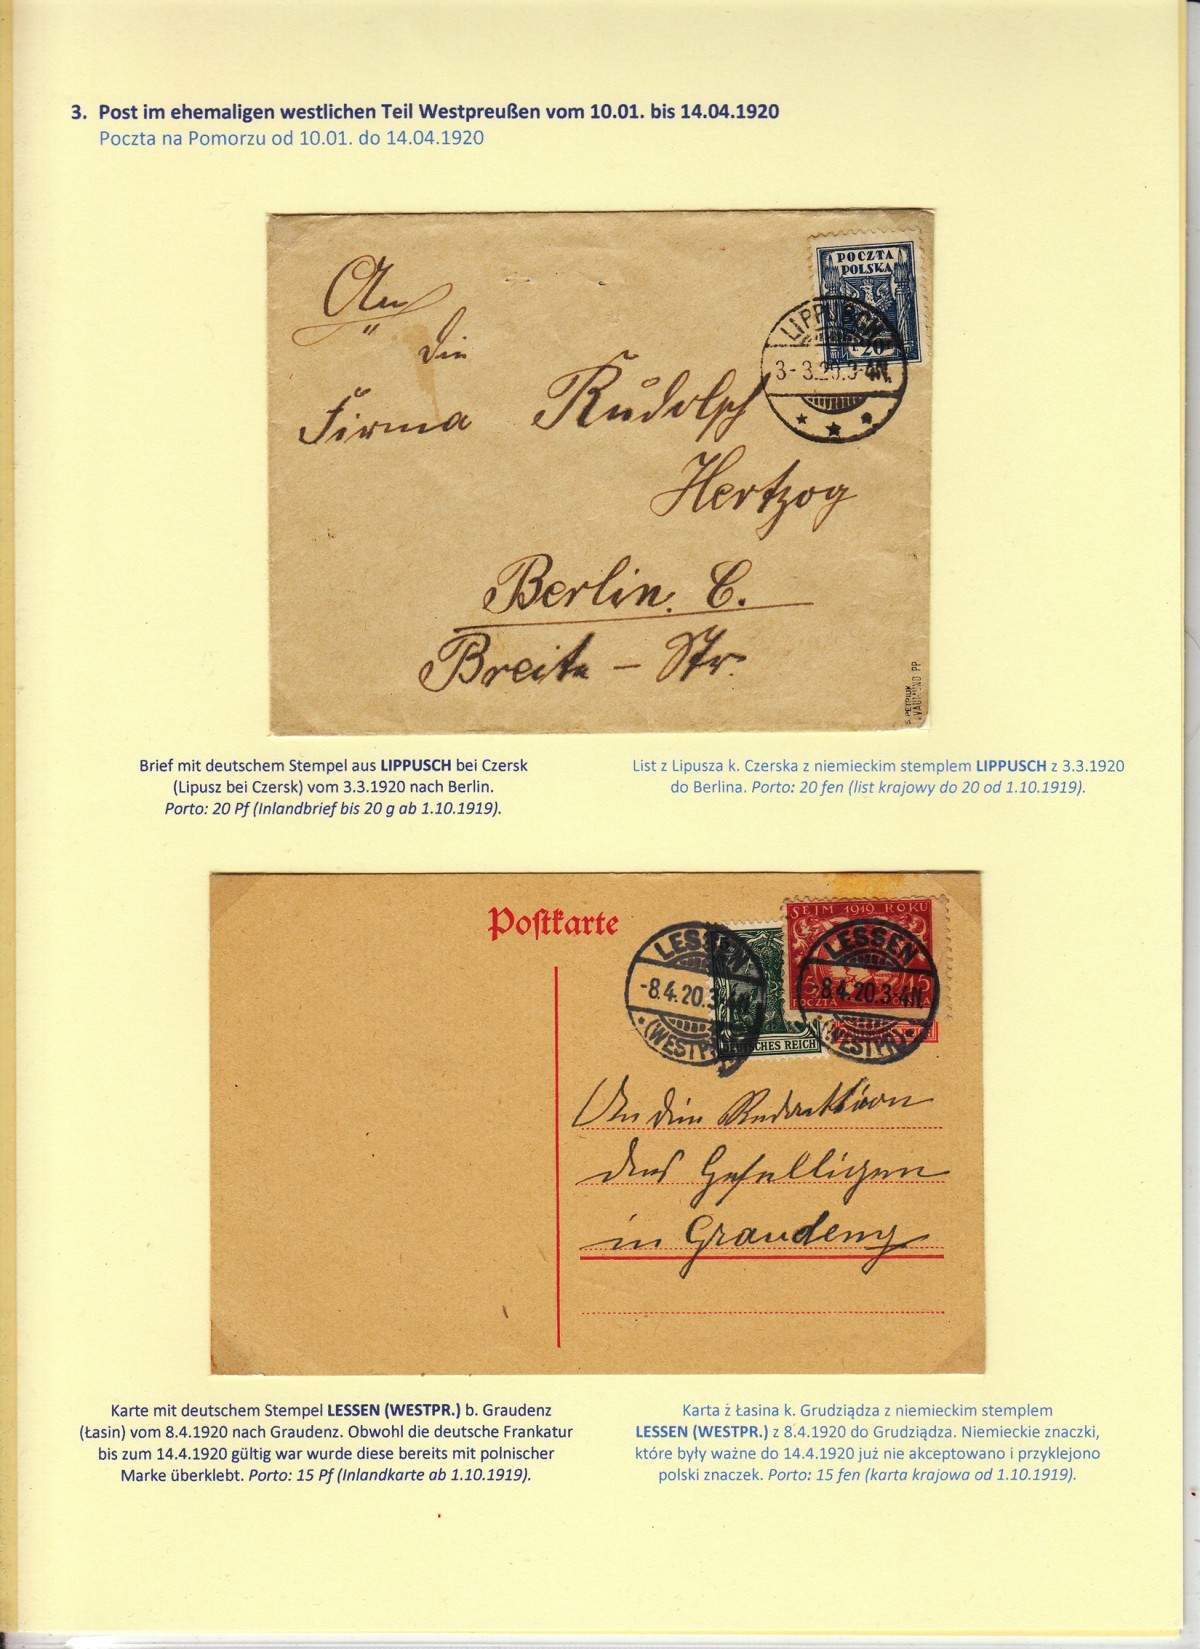 3. Post im ehemaligen westlichen Teil Westpreußen vom 10.01. bis 14.04.1920
Poczta na Pomorzu od 10.01. do 14.04.1920
POCZTA
POLSKA
20
LIPPUSCH
3-3.20.3-4N.
An
die
Firma Rudolph
Hertzog
Berlin. C.
Breite - Str.
PP
Brief mit deutschem Stempel aus LIPPUSCH bei Czersk
(Lipusz bei Czersk) vom 3.3.1920 nach Berlin.
Porto: 20 Pf (Inlandbrief bis 20 g ab 1.10.1919).
List z Lipusza k. Czerska z niemieckim stemplem LIPPUSCH z 3.3.1920
do Berlina. Porto: 20 fen (list krajowy do 20 od 1.10.1919).
Postkarte
SEJM 1919 ROKU
15 15
POCZTA POLSKA
DEUTSCHES REICH
LESSEN
-8.4.20.3-4N.
(WESTPR.)
LESSEN
-8.4.20.3-4N.
(WESTPR.)
An die Redaktion
des Geselligen
in Graudenz
Karte mit deutschem Stempel LESSEN (WESTPR.) b. Graudenz
(Łasin) vom 8.4.1920 nach Graudenz. Obwohl die deutsche Frankatur
bis zum 14.4.1920 gültig war wurde diese bereits mit polnischer
Marke überklebt. Porto: 15 Pf (Inlandkarte ab 1.10.1919).
Karta ż Łasina k. Grudziądza z niemieckim stemplem
LESSEN (WESTPR.) z 8.4.1920 do Grudziądza. Niemieckie znaczki,
które były ważne do 14.4.1920 już nie akceptowano i przyklejono
polski znaczek. Porto: 15 fen (karta krajowa od 1.10.1919).